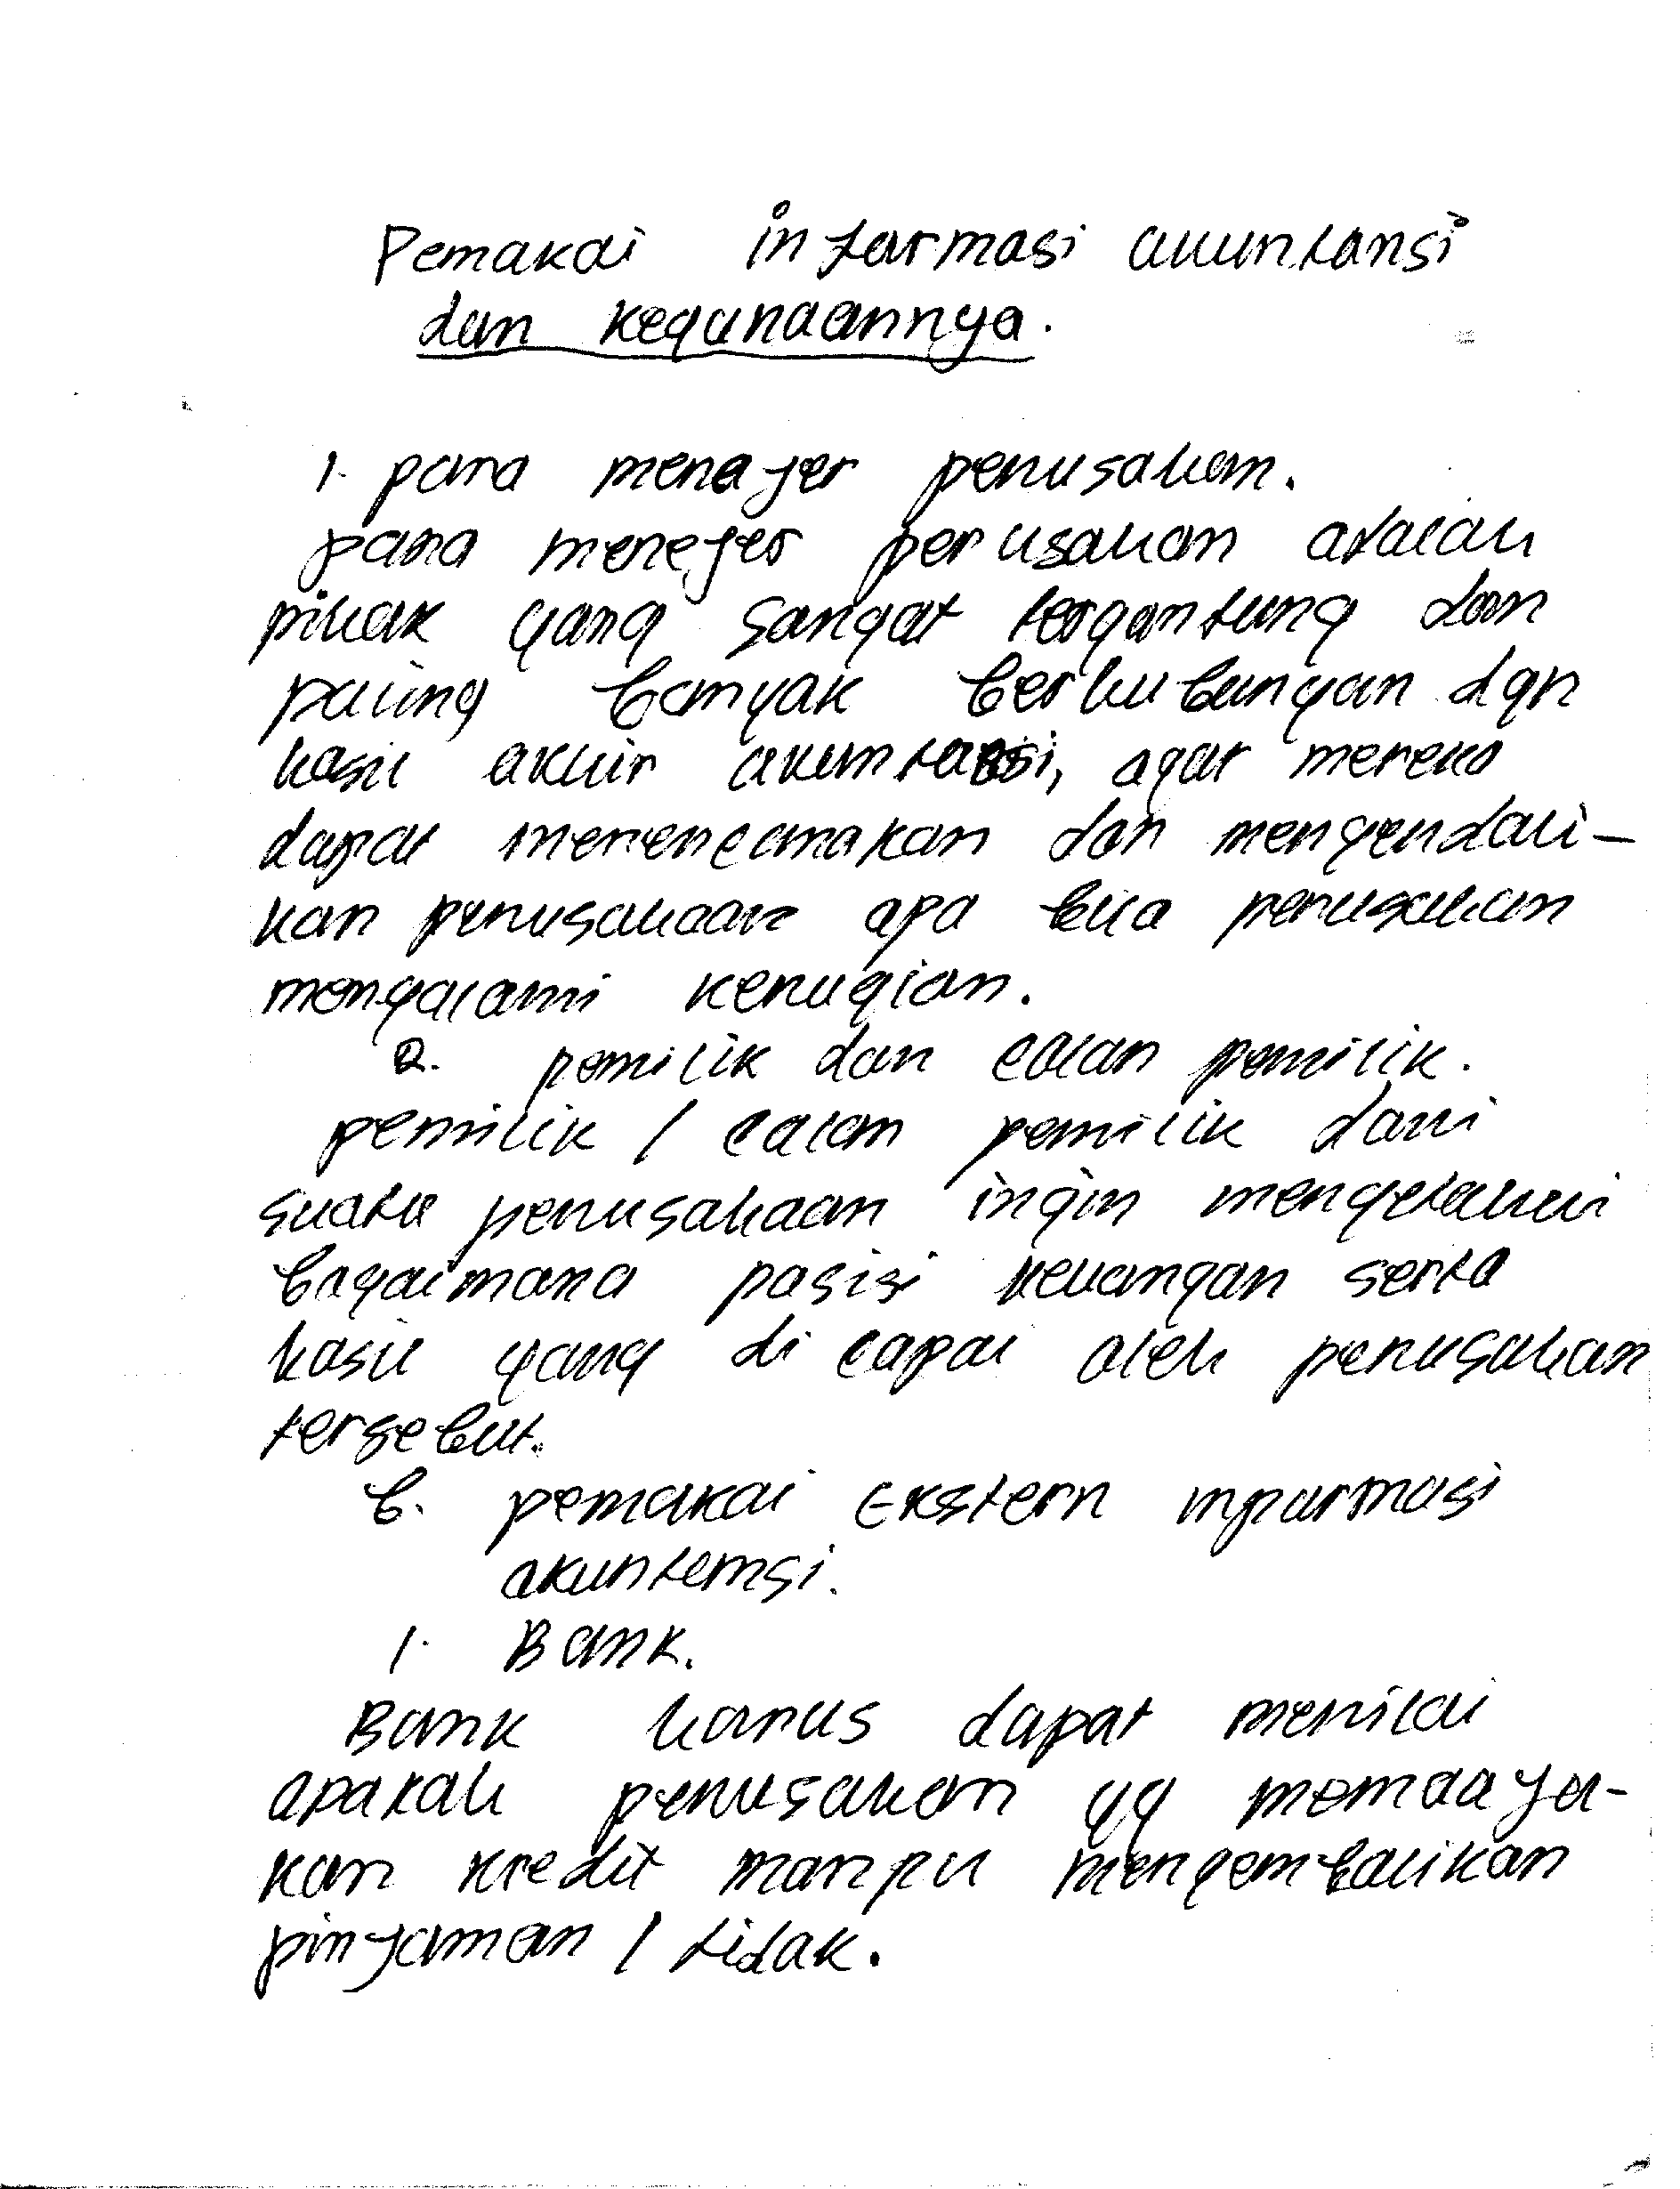 Pemakai informasi akuntansi
dan kegunaannya.
1. para menejer perusahan.
para menejer perusahan adalah
pihak yang sangat tergantung dan
paling banyak berhubungan dgn
hasil akhir akuntansi, agar mereka
dapat merencanakan dan mengendali-
kan perusahaan apa bila perusahan
mengalami kerugian.
2. pemilik dan calan pemilik.
pemilik / calan pemilik dari
suatu perusahaan ingin mengetahui
bagaimana posisi keuangan serta
hasil yang di capai oleh perusahan
tersebut.
b. pemakai Ekstern inparmasi
akuntansi.
1. Bank.
Bank harus dapat menilai
apakah perusahan yg memgaju-
kan kredit manpu mengembalikan
pinjaman / tidak.